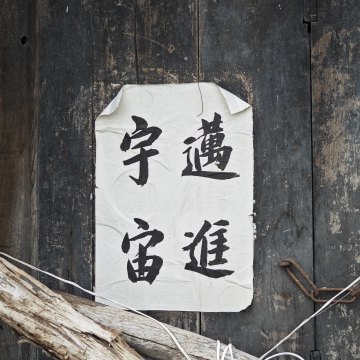 邁進
宇宙